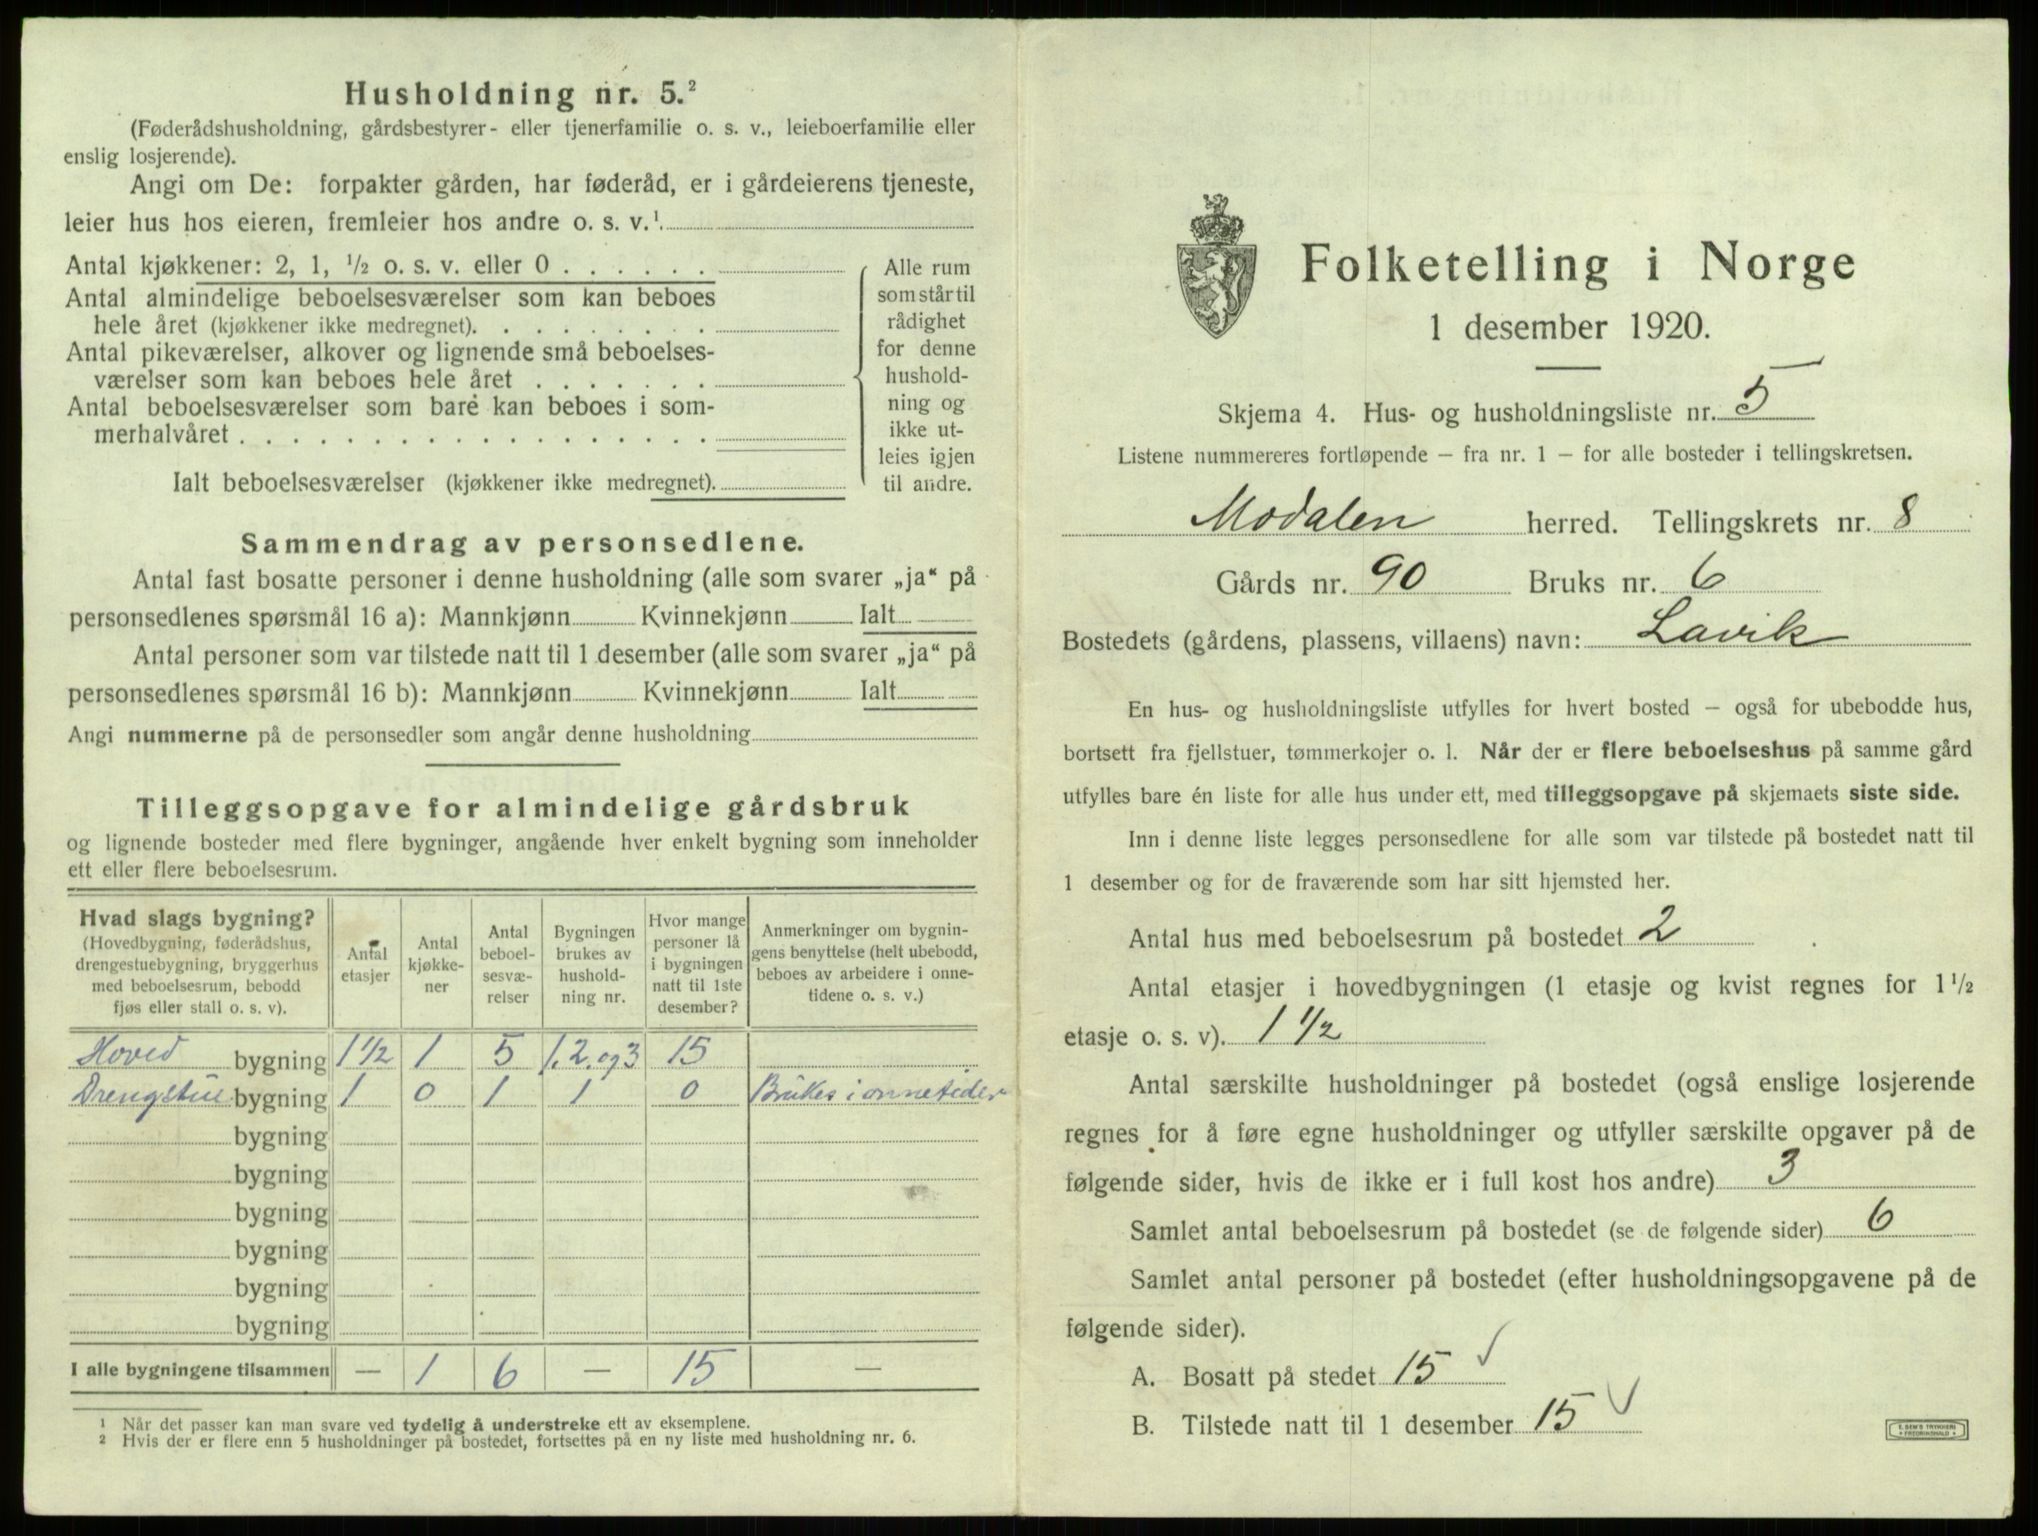 Husholdning nr. 5.²
(Føderådshusholdning, gårdsbestyrer- eller tjenerfamilie o. s. v., leieboerfamilie eller
enslig losjerende).
Angi om De: forpakter gården, har føderåd, er i gårdeierens tjeneste,
leier hus hos eieren, fremleier hos andre o. s. v.¹
Antal kjøkkener: 2, 1, ½ o. s. v. eller 0 . . . . . .
Antal almindelige beboelsesværelser som kan beboes
hele året (kjøkkener ikke medregnet). . . . . . . . .
Antal pikeværelser, alkover og lignende små beboelses-
værelser som kan beboes hele året . . . . . . .
Antal beboelsesværelser som bare kan beboes i som-
merhalvåret . . . . . . . . . . . . . . . . . .
Ialt beboelsesværelser (kjøkkener ikke medregnet).
Alle rum
som står til
rådighet
for denne
hushold-
ning og
ikke ut-
leies igjen
til andre.
Sammendrag av personsedlene.
Antal fast bosatte personer i denne husholdning (alle som svarer „ja“ på
personsedlenes spørsmål 16 a): Mannkjønn Kvinnekjønn Ialt
Antal personer som var tilstede natt til 1 desember (alle som svarer „ja“ på
personsedlenes spørsmål 16 b): Mannkjønn Kvinnekjønn Ialt
Angi nummerne på de personsedler som angår denne husholdning
Tilleggsopgave for almindelige gårdsbruk
og lignende bosteder med flere bygninger, angående hver enkelt bygning som inneholder
ett eller flere beboelsesrum.
Hvad slags bygning?
(Hovedbygning, føderådshus,
drengestuebygning, bryggerhus
med beboelsesrum, bebodd
fjøs eller stall o. s. v).
Antal
etasjer
Antal
kjøkke-
ner
Antal
beboel-
sesvæ-
relser
Bygningen
brukes av
hushold-
ning nr.
Hvor mange
personer lå
i bygningen
natt til 1ste
desember?
Anmerkninger om bygnin-
gens benyttelse (helt ubebodd,
beboes av arbeidere i onne-
tidene o. s. v.)
Hoved bygning 1½ 1 5 1.2. og 3 15
Drengstue bygning 1 0 1 1 0 Brukes i onnetider
bygning
bygning
bygning
bygning
bygning
bygning
I alle bygningene tilsammen — 1 6 — 15 —
¹ Når det passer kan man svare ved tydelig å understreke ett av eksemplene.
² Hvis der er flere enn 5 husholdninger på bostedet, fortsettes på en ny liste med husholdning nr. 6.
Folketelling i Norge
1 desember 1920.
Skjema 4. Hus- og husholdningsliste nr. 5
Listene nummereres fortløpende – fra nr. 1 – for alle bosteder i tellingskretsen.
Modalen herred. Tellingskrets nr. 8
Gårds nr. 90 Bruks nr. 6
Bostedets (gårdens, plassens, villaens) navn: Lavik
En hus- og husholdningsliste utfylles for hvert bosted – også for ubebodde hus,
bortsett fra fjellstuer, tømmerkojer o. l. Når der er flere beboelseshus på samme gård
utfylles bare én liste for alle hus under ett, med tilleggsopgave på skjemaets siste side.
Inn i denne liste legges personsedlene for alle som var tilstede på bostedet natt til
1 desember og for de fraværende som har sitt hjemsted her.
Antal hus med beboelsesrum på bostedet 2
Antal etasjer i hovedbygningen (1 etasje og kvist regnes for 1½
etasje o. s. v). 1½
Antal særskilte husholdninger på bostedet (også enslige losjerende
regnes for å føre egne husholdninger og utfyller særskilte opgaver på de
følgende sider, hvis de ikke er i full kost hos andre) 3
Samlet antal beboelsesrum på bostedet (se de følgende sider) 6
Samlet antal personer på bostedet (efter husholdningsopgavene på de
følgende sider).
A. Bosatt på stedet 15 ✓
B. Tilstede natt til 1 desember 15 ✓
E. SEM'S TRYKKERI
FREDRIKSHALD